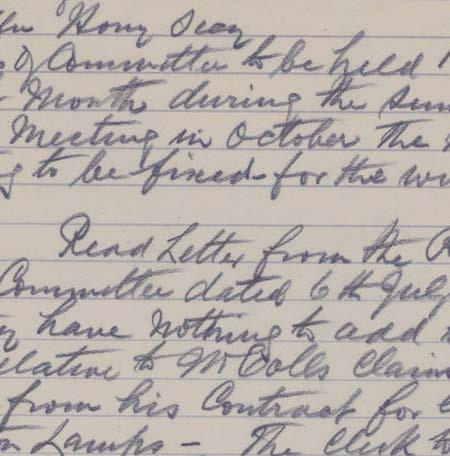 Hony Secy
of Committee to be held
Month during the Sum
Meeting in October the
g to be fixed for the wi
Read Letter from the R
Committee dated 6th July
have nothing to add
elative to Mr Colls Claim
from his Contract for
on Lamps - The Clerk to